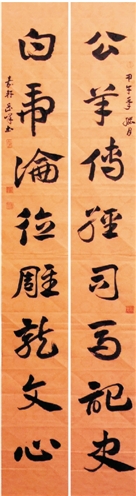 公羊傳經司馬記史
甲午年
白虎論德雕龍文心